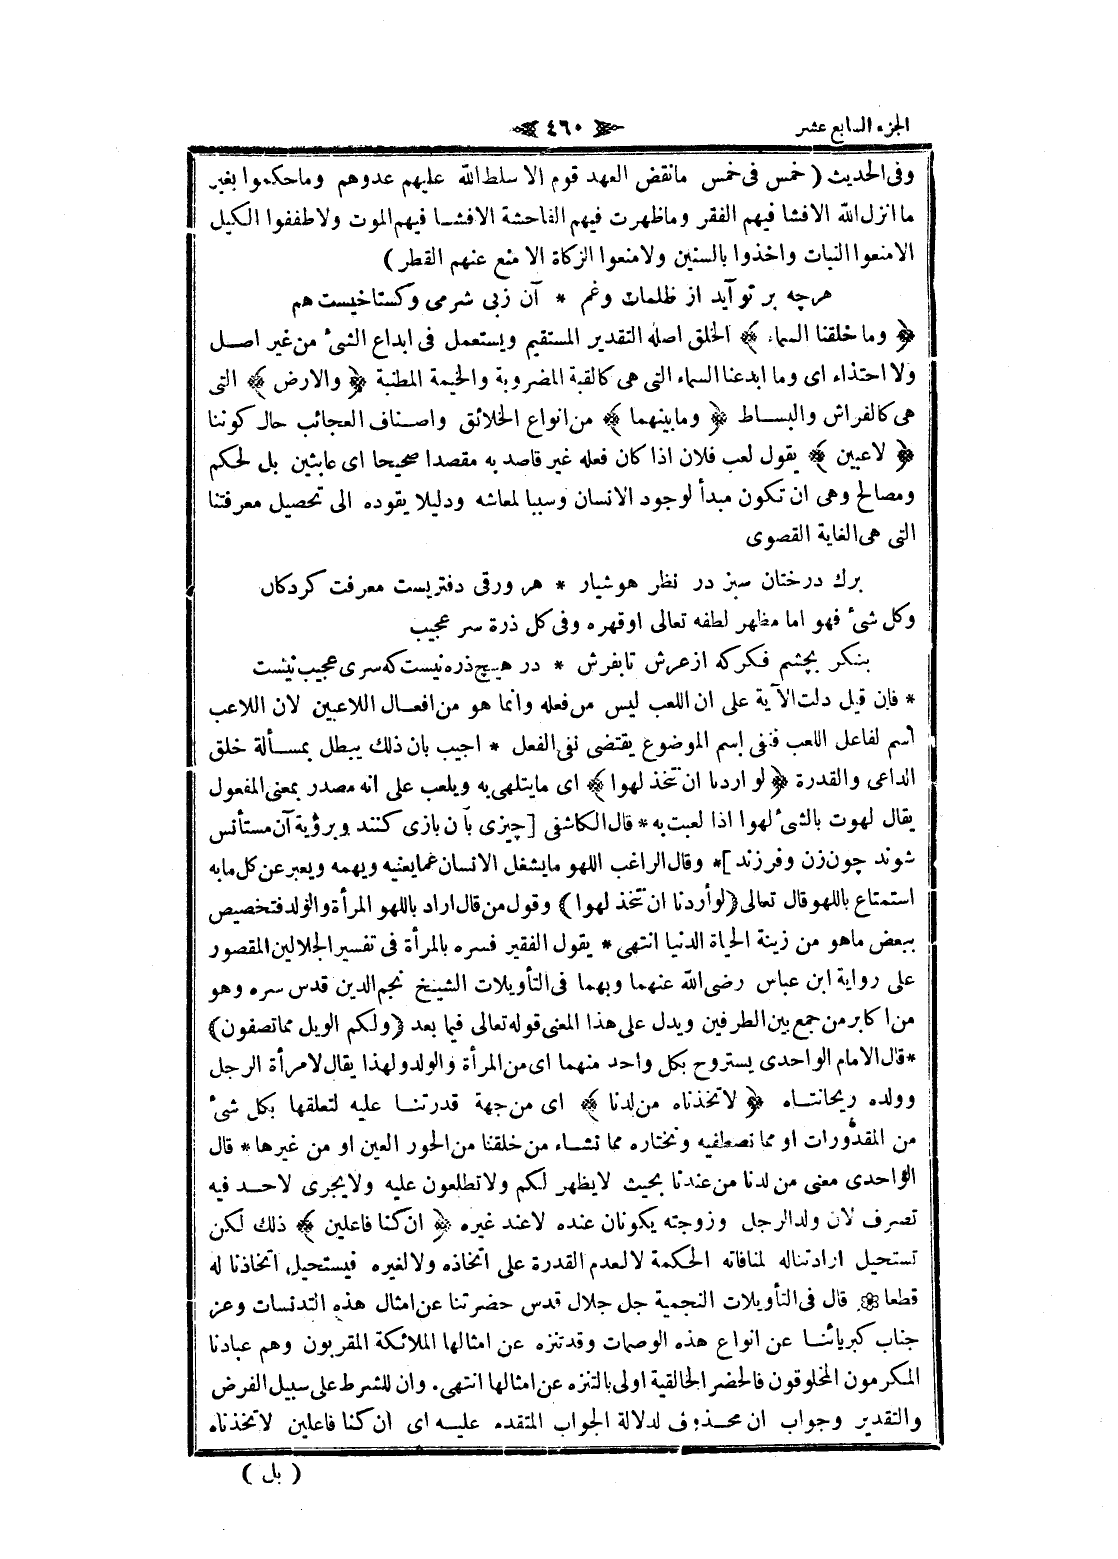 الجزء السابع عشر
٤٦٠
وفى الحديث ( خمس فى خمس مانقض العهد قوم الا سلط الله عليهم عدوهم وماحكموا بغير
ما انزل الله الافشا فيهم الفقر وماظهرت فيهم الفاحشة الافشا فيهم الموت ولاطففوا الكيل
الامنعوا النبات واخذوا بالسنين ولامنعوا الزكاة الا منع عنهم القطر )
هرچه بر تو آيد از ظلمات وغم * آن زبى شرمى وكستاخيست هم
﴿ وما خلقنا السماء ﴾ الخلق اصله التقدير المستقيم ويستعمل فى ابداع الشئ من غير اصل
ولا احتذاء اى وما ابدعنا السماء التى هى كالقبة المضروبة والخيمة المطنبة ﴿ والارض ﴾ التى
هى كالفراش والبساط ﴿ ومابينهما ﴾ من انواع الخلائق واصناف العجائب حال كوننا
﴿ لاعبين ﴾ يقول لعب فلان اذا كان فعله غير قاصد به مقصدا صحيحا اى عابثين بل لحكم
ومصالح وهى ان تكون مبدأ لوجود الانسان وسببا لمعاشه ودليلا يقوده الى تحصيل معرفتنا
التى هى الغاية القصوى
برك درختان سبز در نظر هوشيار * هر ورقى دفتريست معرفت كردكان
وكل شئ فهو اما مظهر لطفه تعالى اوقهره وفى كل ذرة سر عجيب
بنكر بچشم فكر كه از عرش تابفرش * در هيچ ذره نيست كه سرى عجيب نيست
* فان قيل دلت الآية على ان اللعب ليس من فعله وانما هو من افعال اللاعبين لان اللاعب
اسم لفاعل اللعب فنفى اسم الموضوع يقتضى نفى الفعل * اجيب بان ذلك يبطل بمسألة خلق
الداعى والقدرة ﴿ لو اردنا ان نتخذ لهوا ﴾ اى مايتلهى به ويلعب على انه مصدر بمعنى المفعول
يقال لهوت بالشئ لهوا اذا لعبت به * قال الكاشفى [ چيزى بآن بازى كنند وبرؤية آن مستأنس
شوند چون زن وفرزند ] * وقال الراغب اللهو مايشغل الانسان عمايعنيه ويهمه ويعبر عن كل مابه
استمتاع باللهو قال تعالى ( لو أردنا ان نتخذ لهوا ) وقول من قال اراد باللهو المرأة والولد فتخصيص
ببعض ماهو من زينة الحياة الدنيا انتهى * يقول الفقير فسره بالمرأة فى تفسير الجلالين المقصور
على رواية ابن عباس رضى الله عنهما وبهما فى التأويلات الشيخ نجم الدين قدس سره وهو
من اكابر من جمع بين الطرفين ويدل على هذا المعنى قوله تعالى فيما بعد ( ولكم الويل مماتصفون )
* قال الامام الواحدى يستروح بكل واحد منهما اى من المرأة والولد ولهذا يقال لامرأة الرجل
وولده ريحانتاه ﴿ لاتخذناه من لدنا ﴾ اى من جهة قدرتنا عليه لتعلقها بكل شئ
من المقدورات او مما نصطفيه ونختاره مما نشاء من خلقنا من الحور العين او من غيرها * قال
الواحدى معنى من لدنا من عندنا بحيث لايظهر لكم ولاتطلعون عليه ولايجرى لاحد فيه
تصرف لان ولد الرجل وزوجته يكونان عنده لاعند غيره ﴿ ان كنا فاعلين ﴾ ذلك لكن
تستحيل ارادتنا له لمنافاته الحكمة لالعدم القدرة على اتخاذه ولالغيره فيستحيل اتخاذنا له
قطعا . قال فى التأويلات النجمية جل جلال قدس حضرتنا عن امثال هذه التدنسات وعز
جناب كبريائنا عن انواع هذه الوصمات وقدتنزه عن امثالها الملائكة المقربون وهم عبادنا
المكرمون المخلوقون فالحضر الخالقية اولى بالتنزه عن امثالها انتهى . وان للشرط على سبيل الفرض
والتقدير وجواب ان محذوف لدلالة الجواب المتقدم عليه اى ان كنا فاعلين لاتخذناه
( بل )